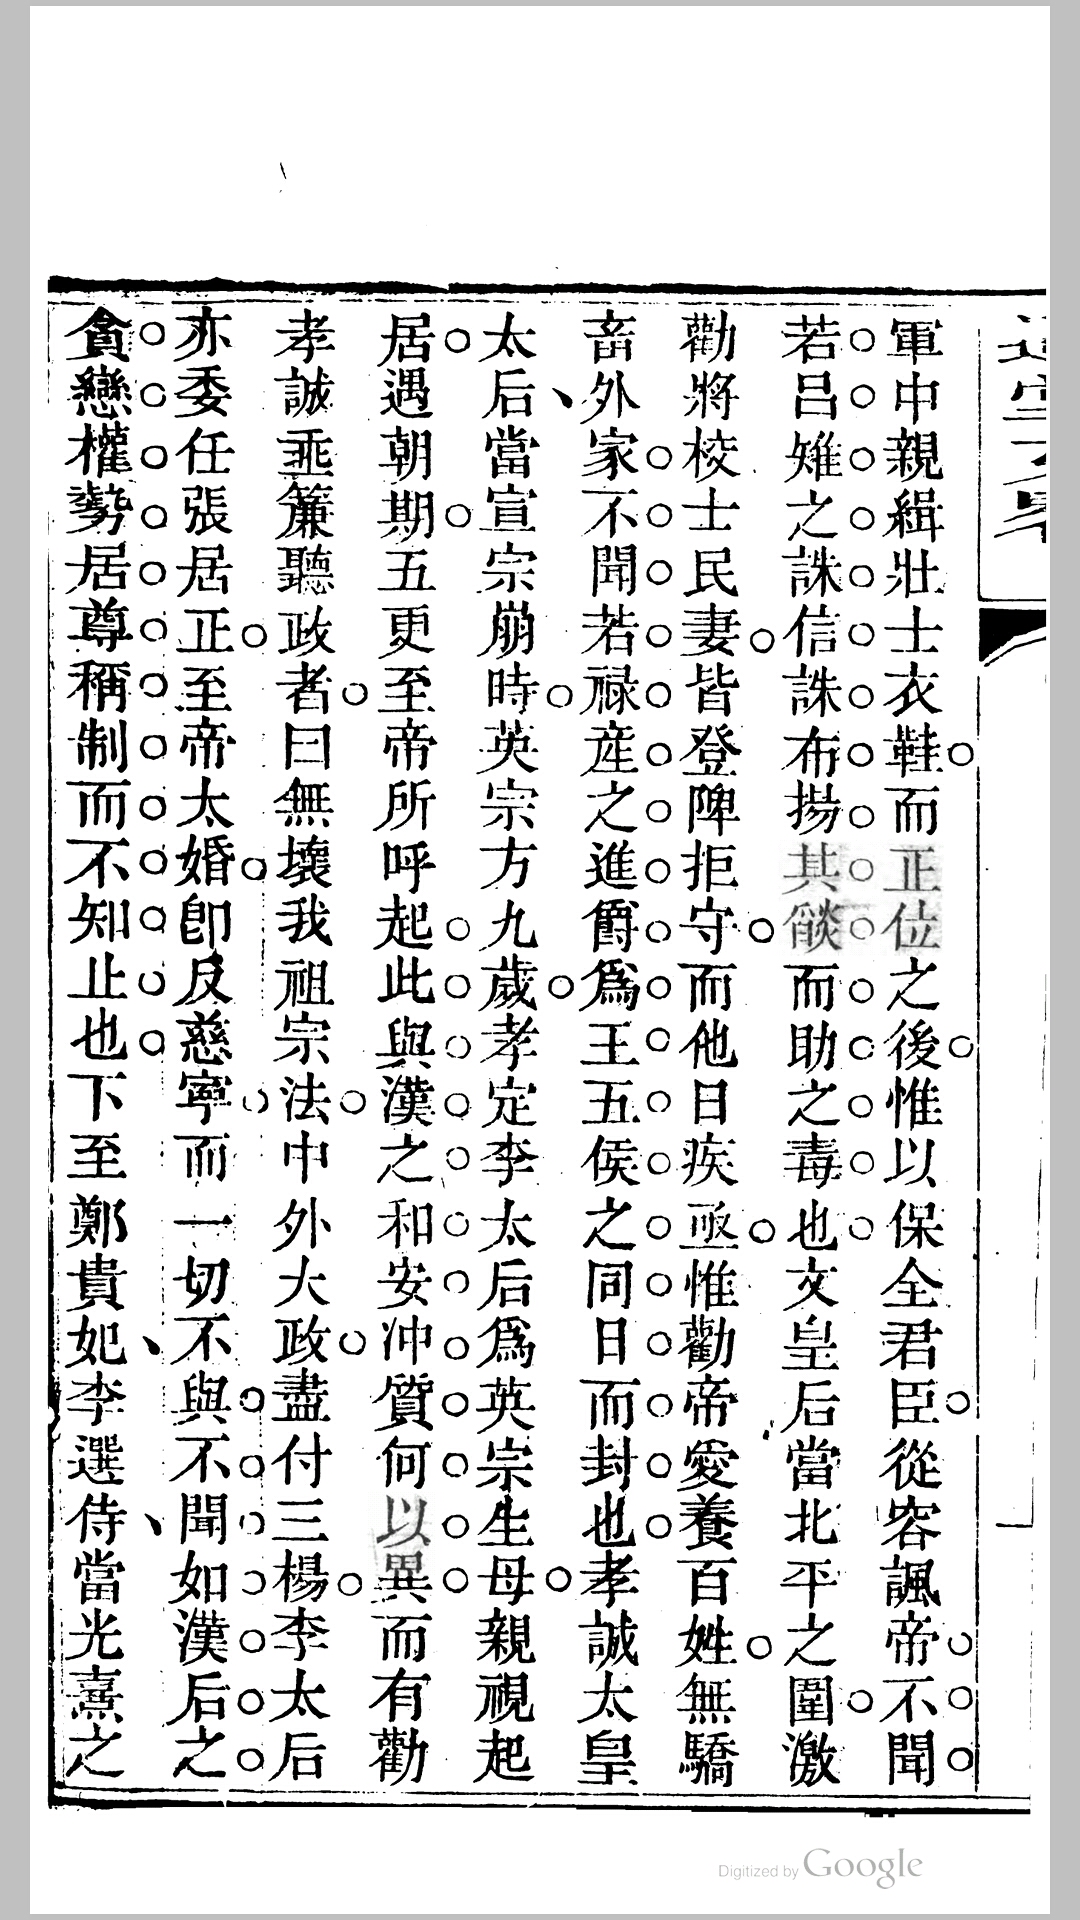 軍中親緝壯士衣鞋而正位之後惟以保全君臣從容諷帝不聞
若呂雉之誅信誅布揚其燄而助之毒也文皇后當北平之圍激
勸將校士民妻皆登陴拒守而他日疾亟惟勸帝愛養百姓無驕
畜外家不聞若祿産之進爵爲王五侯之同日而封也孝誠太皇
太后當宣宗崩時英宗方九歲孝定李太后爲英宗生母親視起
居遇朝期五更至帝所呼起此與漢之和安冲質何以異而有勸
孝誠垂簾聽政者曰無壞我祖宗法中外大政盡付三楊李太后
亦委任張居正至帝太婚卽反慈寧而一切不與不聞如漢后之
貪戀權勢居尊稱制而不知止也下至鄭貴妃李選侍當光熹之
Digitized by Google